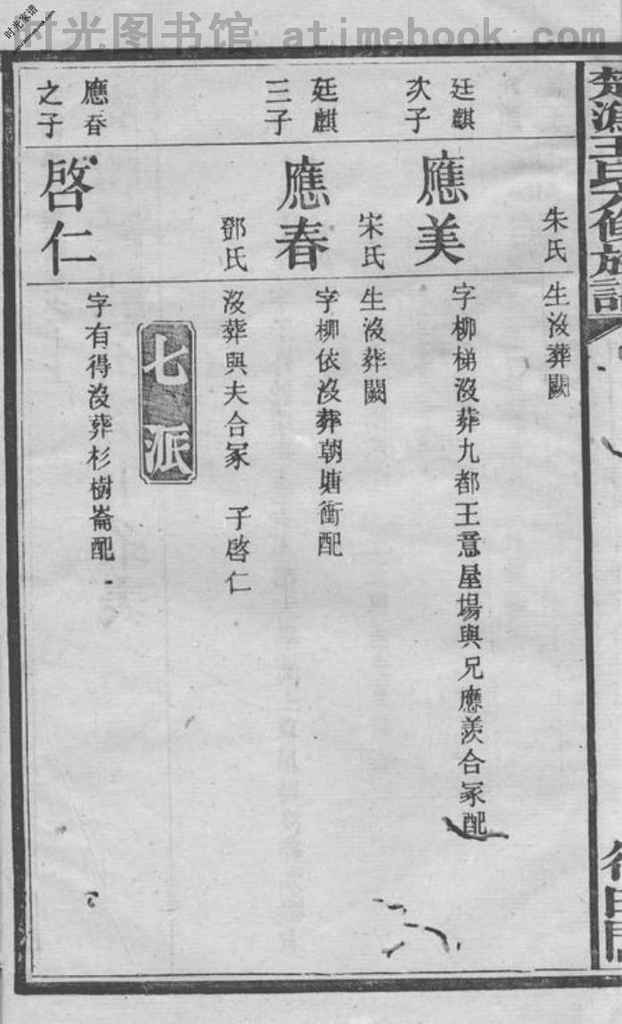 时光图书馆 atimebook.com
时光家谱
朱氏
生沒葬闕
廷麒
次子
應美
字柳梯沒葬九都王意屋場與兄應羨合冢配
宋氏
生沒葬闕
廷麒
三子
應春
字柳依沒葬朝塘衝配
鄧氏
沒葬與夫合冢 子啓仁
七派
應春
之子
啓仁
字有得沒葬杉樹崙配